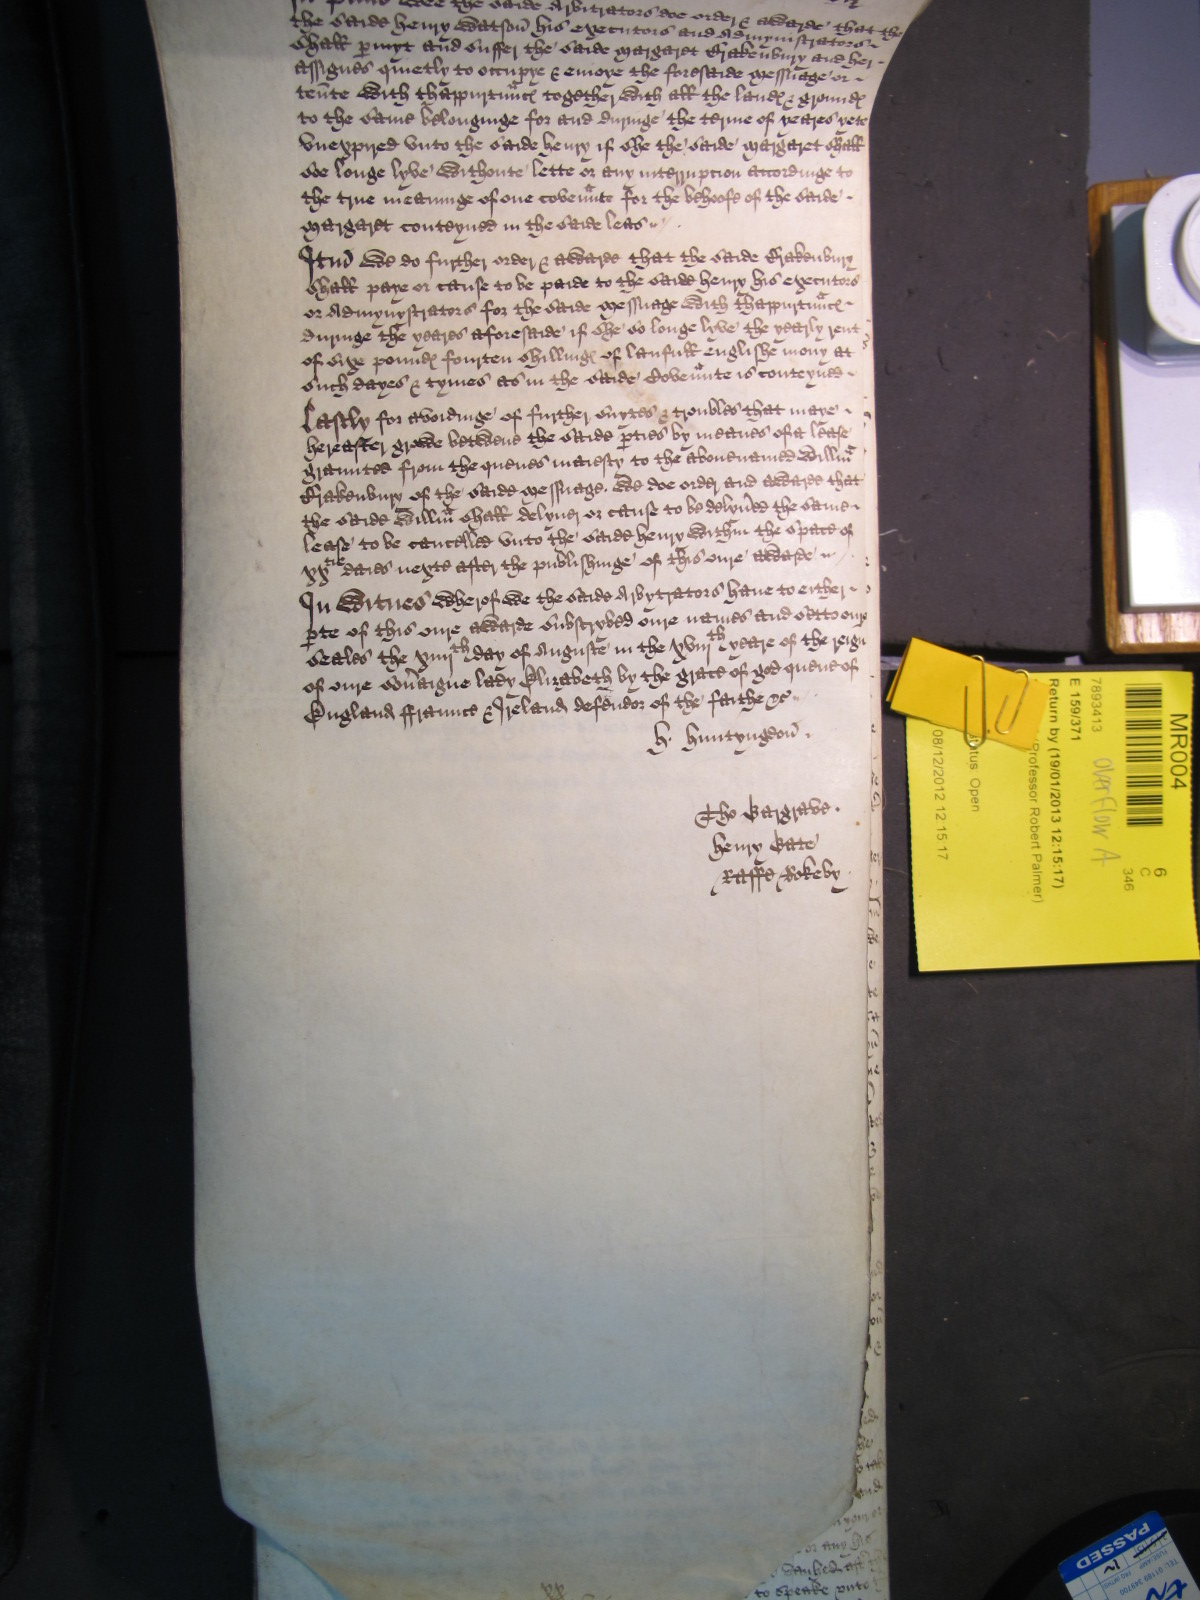 In primis wee the saide Arbitrators doe order & awarde that the
the saide henry watson his executors and Admynistrators
shall pmyt and suffer the saide Margaret Brakenbury and her
assignes quietly to occupye & enioye the foresaide messuage or
tente with thappurtinncs together with all the landes & groundes
to the same belonginge for and duringe the terme of yeares yete
vnexpired vnto the saide henry if she the saide Margaret shall
soe longe lyve withoute lette or any interruption accordinge to
the true meaninge of one covennte for the behoofe of the saide
Margaret conteyned in the saide leas
Itm we do further order & awarde that the saide Brakenbury
shall paye or cause to be paide to the saide henry his executors
or Admynystrators for the saide messuage with thappurtinncs
duringe the yeares aforesaide if she so longe lyve the yearly rent
of syxe poundes fourten shillinges of laufull englishe mony at
such dayes & tymes as in the saide Covennte is conteyned
Lastly for avoidinge of further suytes & troubles that maye
hereafter growe betwene the saide pties by meanes of a lease
graunted from the quenes maiesty to the abouenamed willm
Brakenbury of the saide messuage. we doe order and awarde that
the saide willm shall delyuer or cause to be delyued the same
lease to be cancelled vnto the saide henry within the space of
xxtie daies nexte after the publishinge of this oure awarde
In witnes wherof we the saide Arbytrators haue to either
pte of this oure awarde subscrybed oure names and sette oure
seales the xviijth day of Auguste in the xviijth yeare of the reign
of oure sovaigne lady Elizabeth by the grace of god quene of
England ffraunce & Ireland defendor of the faithe &c
h. huntyngdon.
Tho Gargrave.
henry Gate
Raffe Rokeby
or any his
to speake vnto
MR004
6
C
346
7893413
overflow A
E 159/371
Return by (19/01/2013 12:15:17)
(Professor Robert Palmer)
Status Open
08/12/2012 12:15:17
PASSED